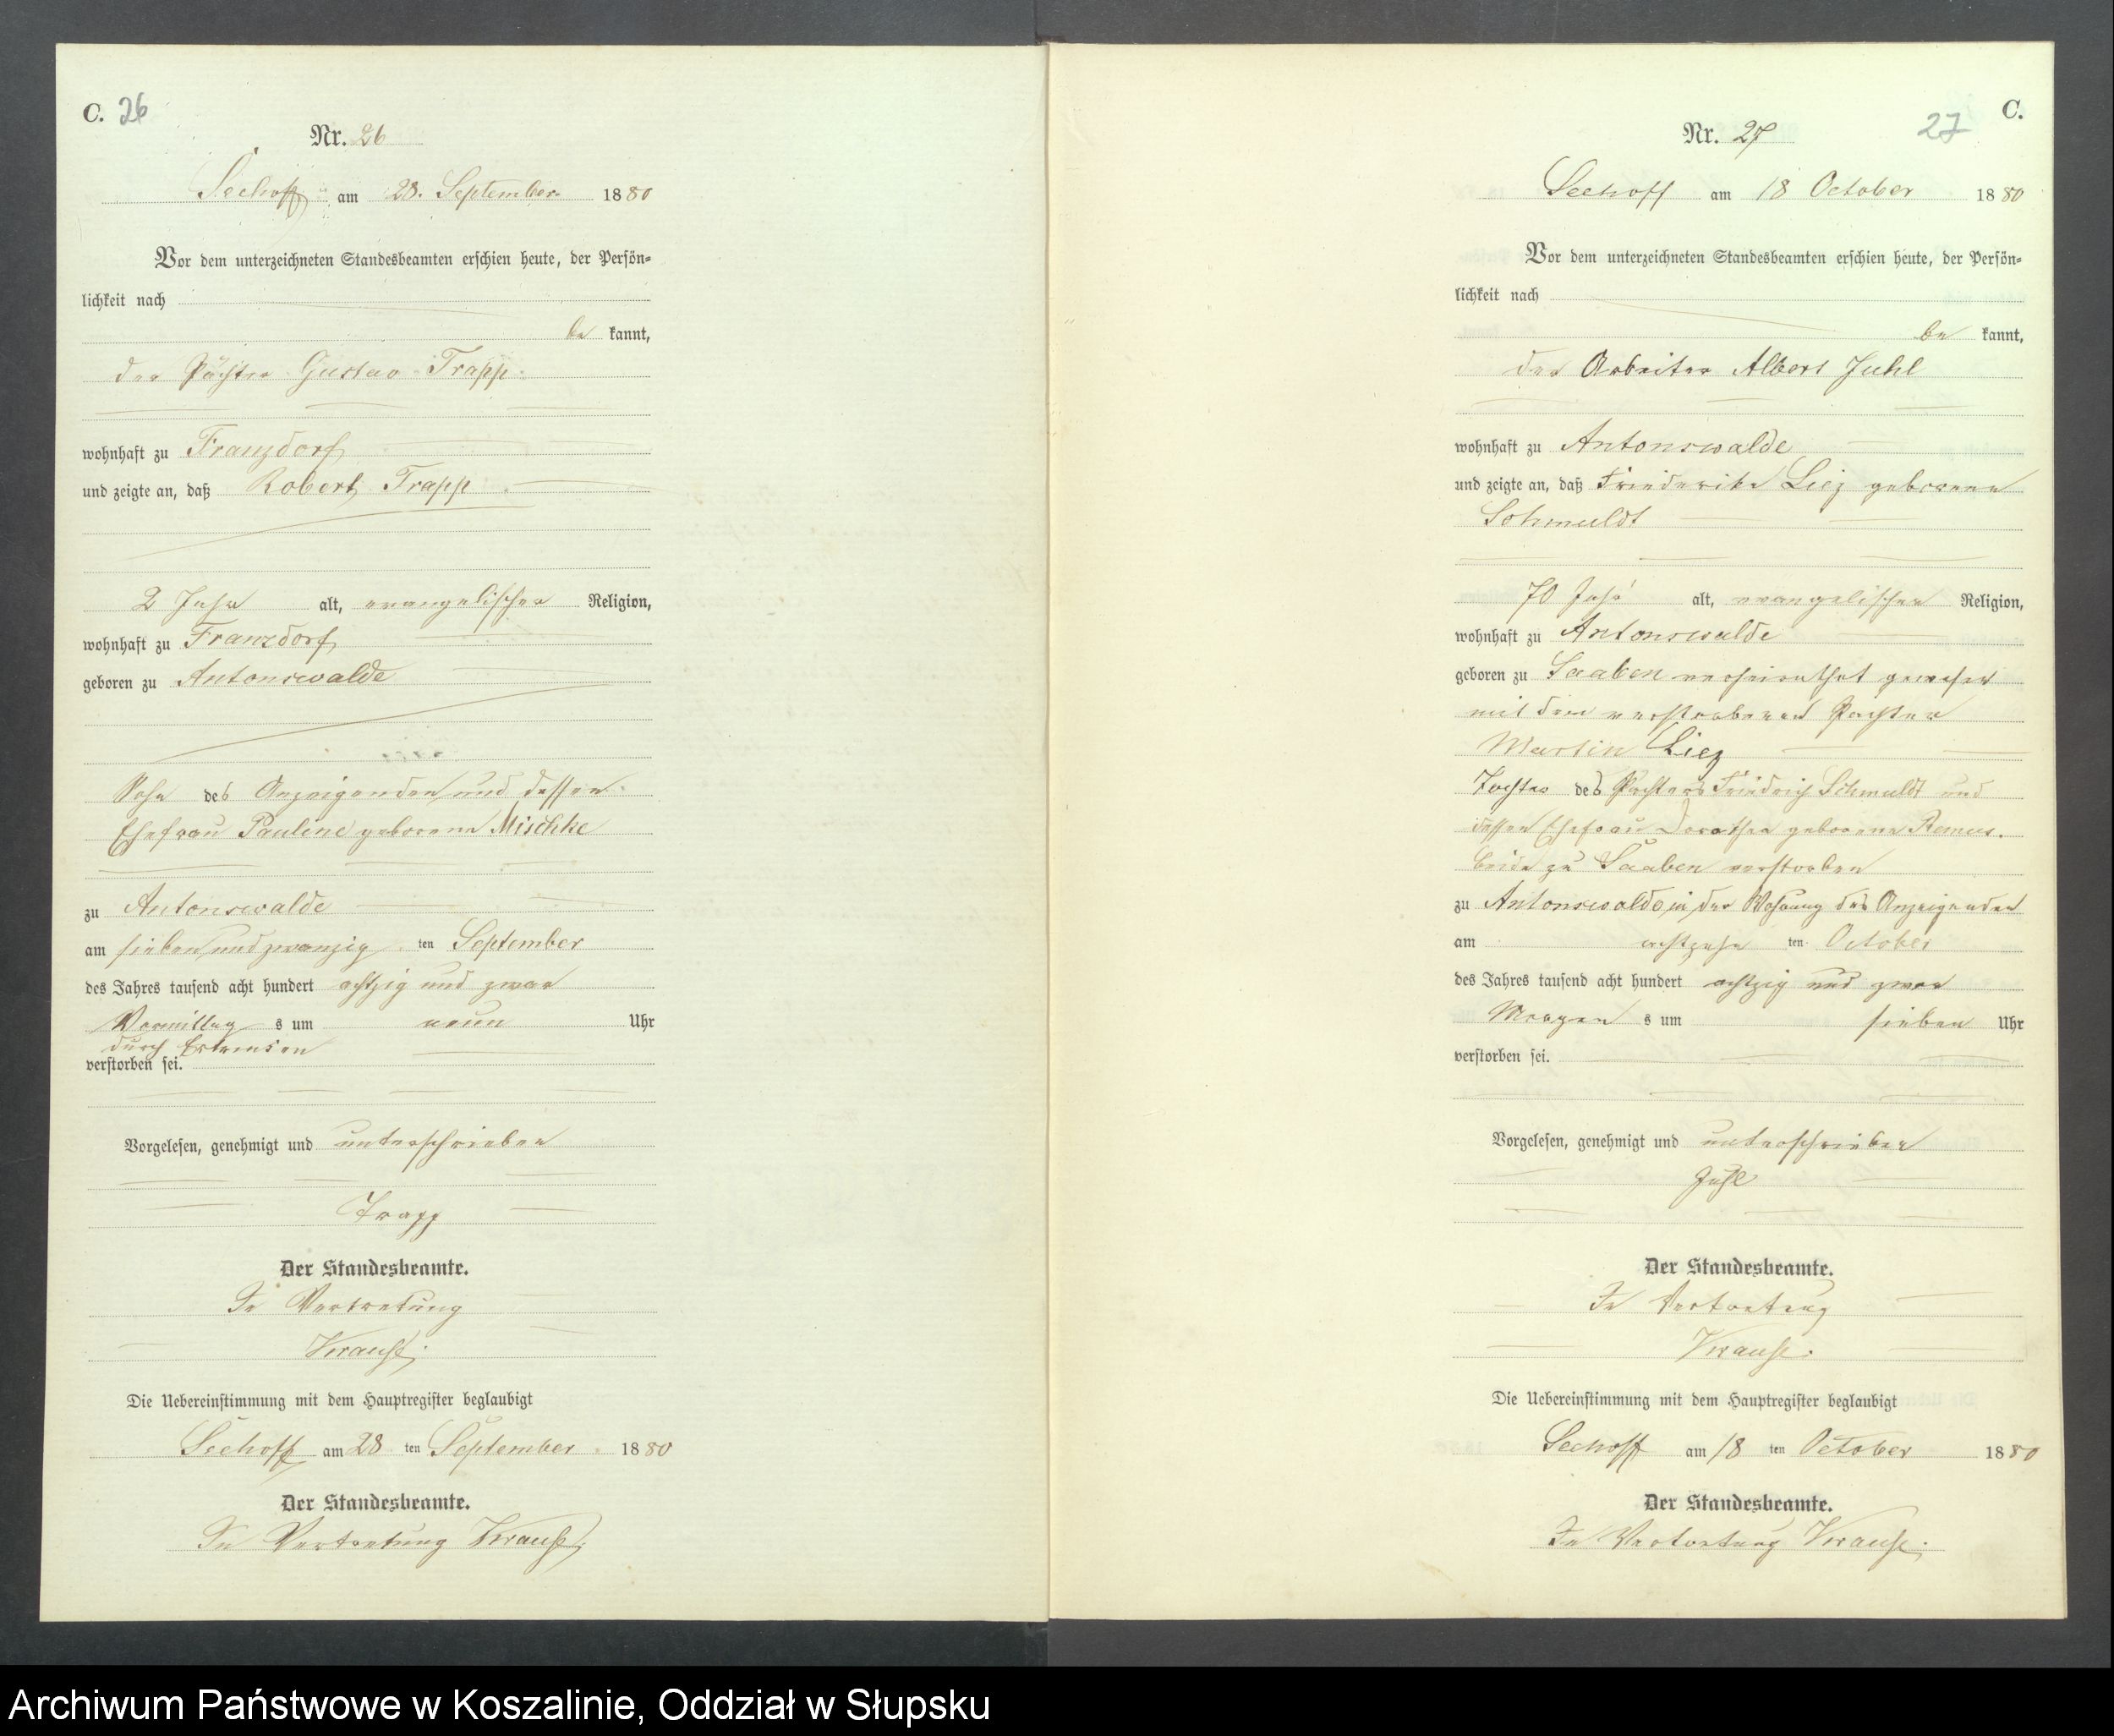 C. 26
Nr. 26
Seehoff am 28. September 1880
Vor dem unterzeichneten Standesbeamten erschien heute, der Persön-
lichkeit nach
be kannt,
der Pächter Gustav Trapp
wohnhaft zu Franzdorf
und zeigte an, daß Robert Trapp
2 Jahr alt, evangelischer Religion,
wohnhaft zu Franzdorf
geboren zu Antonswalde
Sohn des Anzeigenden und dessen
Ehefrau Pauline geborene Mischke
zu Antonswalde
am sieben und zwanzig ten September
des Jahres tausend acht hundert achtzig und zwar
Vormittag s um neun Uhr
durch Ertrinken
verstorben sei.
Vorgelesen, genehmigt und unterschrieben
Trapp
Der Standesbeamte.
In Vertretung
Krause.
Die Uebereinstimmung mit dem Hauptregister beglaubigt
Seehoff am 28 ten September 1880
Der Standesbeamte.
In Vertretung Krause.
C.
27
Nr. 27
Seehoff am 18 October 1880
Vor dem unterzeichneten Standesbeamten erschien heute, der Persön-
lichkeit nach
be kannt,
der Arbeiter Albert Juhl
wohnhaft zu Antonswalde
und zeigte an, daß Friederike Liez geborene
Schmuldt
70 Jahr alt, evangelischer Religion,
wohnhaft zu Antonswalde
geboren zu Saaben verheirathet gewesen
mit dem verstorbenen Pächter
Martin Liez
Tochter des Pächters Friedrich Schmuldt und
dessen Ehefrau Dorothea geborene Remus.
beide zu Saaben verstorben
zu Antonswalde in der Wohnung des Anzeigenden
am achtzehn ten October
des Jahres tausend acht hundert achtzig und zwar
Morgen s um sieben Uhr
verstorben sei.
Vorgelesen, genehmigt und unterschrieben
Juhl
Der Standesbeamte.
In Vertretung
Krause.
Die Uebereinstimmung mit dem Hauptregister beglaubigt
Seehoff am 18 ten October 1880
Der Standesbeamte.
In Vertretung Krause.
Archiwum Państwowe w Koszalinie, Oddział w Słupsku